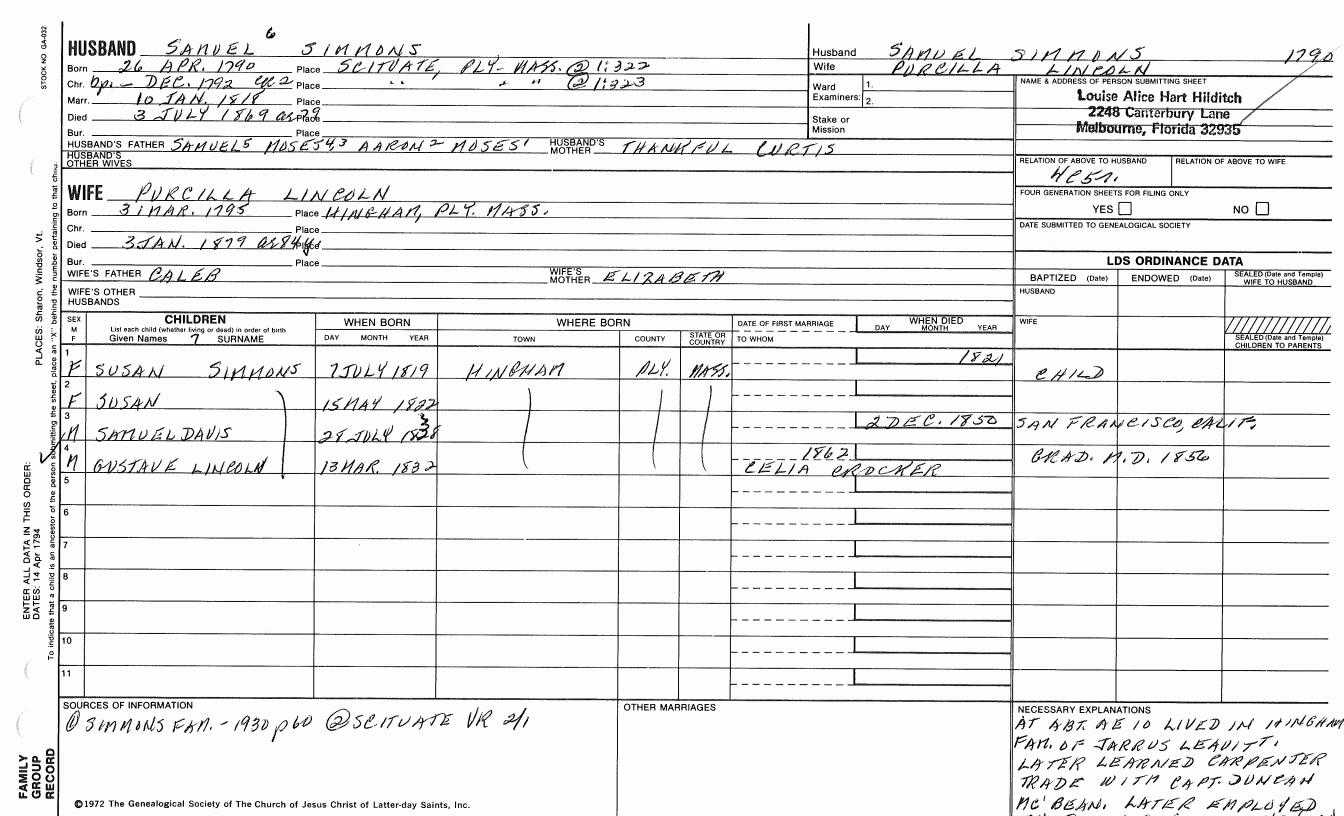 STOCK NO GA-032
HUSBAND SAMUEL 6 SIMMONS
Born 26 APR. 1790 Place SCITUATE, PLY- MASS. @ 1:322
Chr. DEC. 1792 Place " " " @ 1:323
Marr. 10 JAN. 1818 Place
Died 3 JULY 1869 ae 79 Place
Bur. Place
HUSBAND'S FATHER SAMUEL5 MOSES4,3 AARON2 MOSES1 HUSBAND'S MOTHER THANKFUL CURTIS
HUSBAND'S OTHER WIVES
WIFE PURCILLA LINCOLN
Born 31 MAR. 1795 Place HINGHAM, PLY. MASS.
Chr. Place
Died 3 JAN. 1879 Place
Bur. Place
WIFE'S FATHER CALEB WIFE'S MOTHER ELIZABETH
WIFE'S OTHER HUSBANDS
Husband SAMUEL SIMMONS 1790
Wife PURCILLA LINCOLN
Ward Examiners: 1.
2.
Stake or Mission
NAME & ADDRESS OF PERSON SUBMITTING SHEET
Louise Alice Hart Hilditch
2248 Canterbury Lane
Melbourne, Florida 32935
RELATION OF ABOVE TO HUSBAND RELATION OF ABOVE TO WIFE
FOUR GENERATION SHEETS FOR FILING ONLY
YES NO
DATE SUBMITTED TO GENEALOGICAL SOCIETY
LDS ORDINANCE DATA
BAPTIZED (Date) ENDOWED (Date) SEALED (Date and Temple) WIFE TO HUSBAND
HUSBAND
WIFE
SEALED (Date and Temple) CHILDREN TO PARENTS
SEX M F CHILDREN WHEN BORN WHERE BORN DATE OF FIRST MARRIAGE WHEN DIED
List each child (whether living or dead) in order of birth
Given Names 7 SURNAME DAY MONTH YEAR TOWN COUNTY STATE OR COUNTRY TO WHOM DAY MONTH YEAR
1 F SUSAN SIMMONS 7 JULY 1819 HINGHAM PLY. MASS. 1821 CHILD
2 F SUSAN 15 MAY 1822
3 M SAMUEL DAVIS 28 JULY 2 DEC. 1850 SAN FRANCISCO, CALIF.
4 M GUSTAVE LINCOLN 13 MAR. 1832 1862 CELIA CROCKER GRAD. M.D. 1856
5
6
7
8
9
10
11
SOURCES OF INFORMATION
① SIMMONS FAM. - 1930 p60 ② SCITUATE VR 2/1
OTHER MARRIAGES
NECESSARY EXPLANATIONS
AT ABT. AE 10 LIVED IN HINGHAM
FAM. OF JARRUS LEAVITT.
LATER LEARNED CARPENTER
TRADE WITH CAPT. DUNCAN
MC'BEAN. LATER EMPLOYED
©1972 The Genealogical Society of The Church of Jesus Christ of Latter-day Saints, Inc.
FAMILY GROUP RECORD
ENTER ALL DATA IN THIS ORDER:
DATES: 14 Apr 1794
PLACES: Sharon, Windsor, Vt.
To indicate that a child is an ancestor of the person submitting the sheet, place an "X" behind the number pertaining to that child.